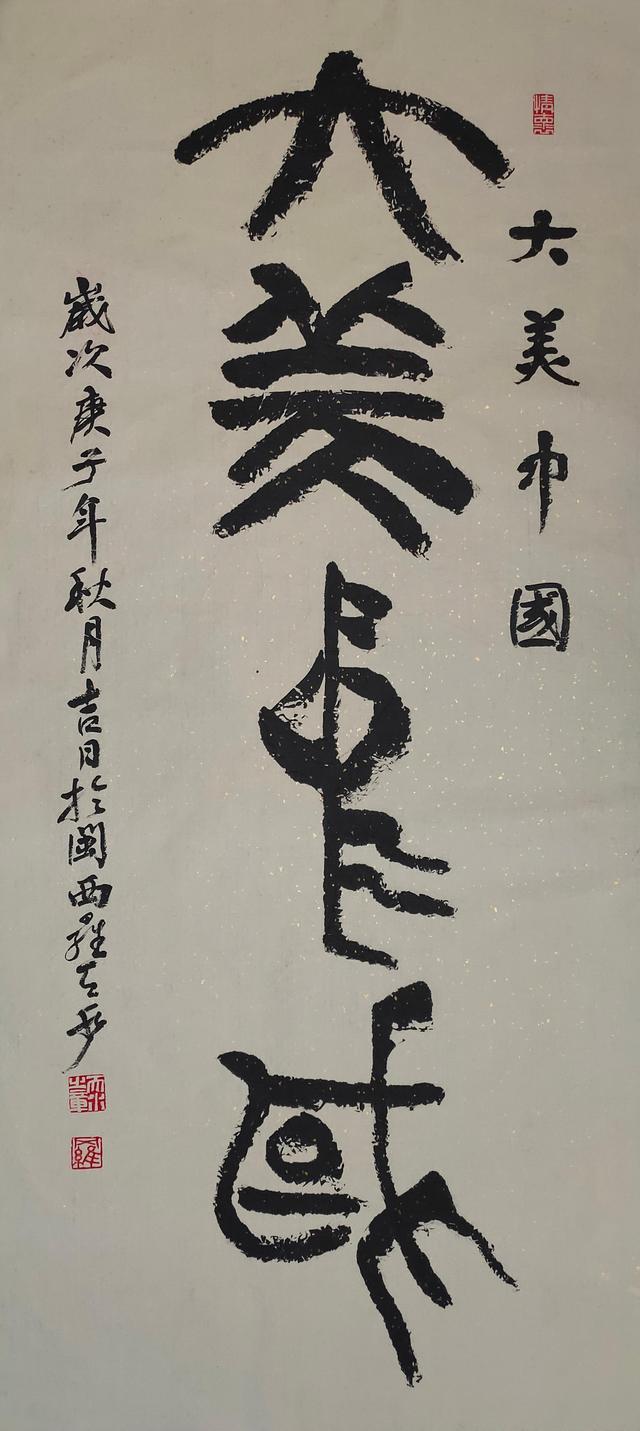 大美中國
大美中國
歲次庚子年秋月吉日於閩西羅
羅